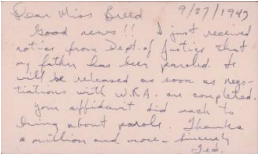 Dear Miss Breed 9/27/1943
Good news!! I just received
notice from Dept. of Justice that
my father has been paroled. He
will be released as soon as nego-
tiations with W.R.A. are completed.
Your affidavit did much to
bring about parole. Thanks
a million and more - Sincerely
Ted.